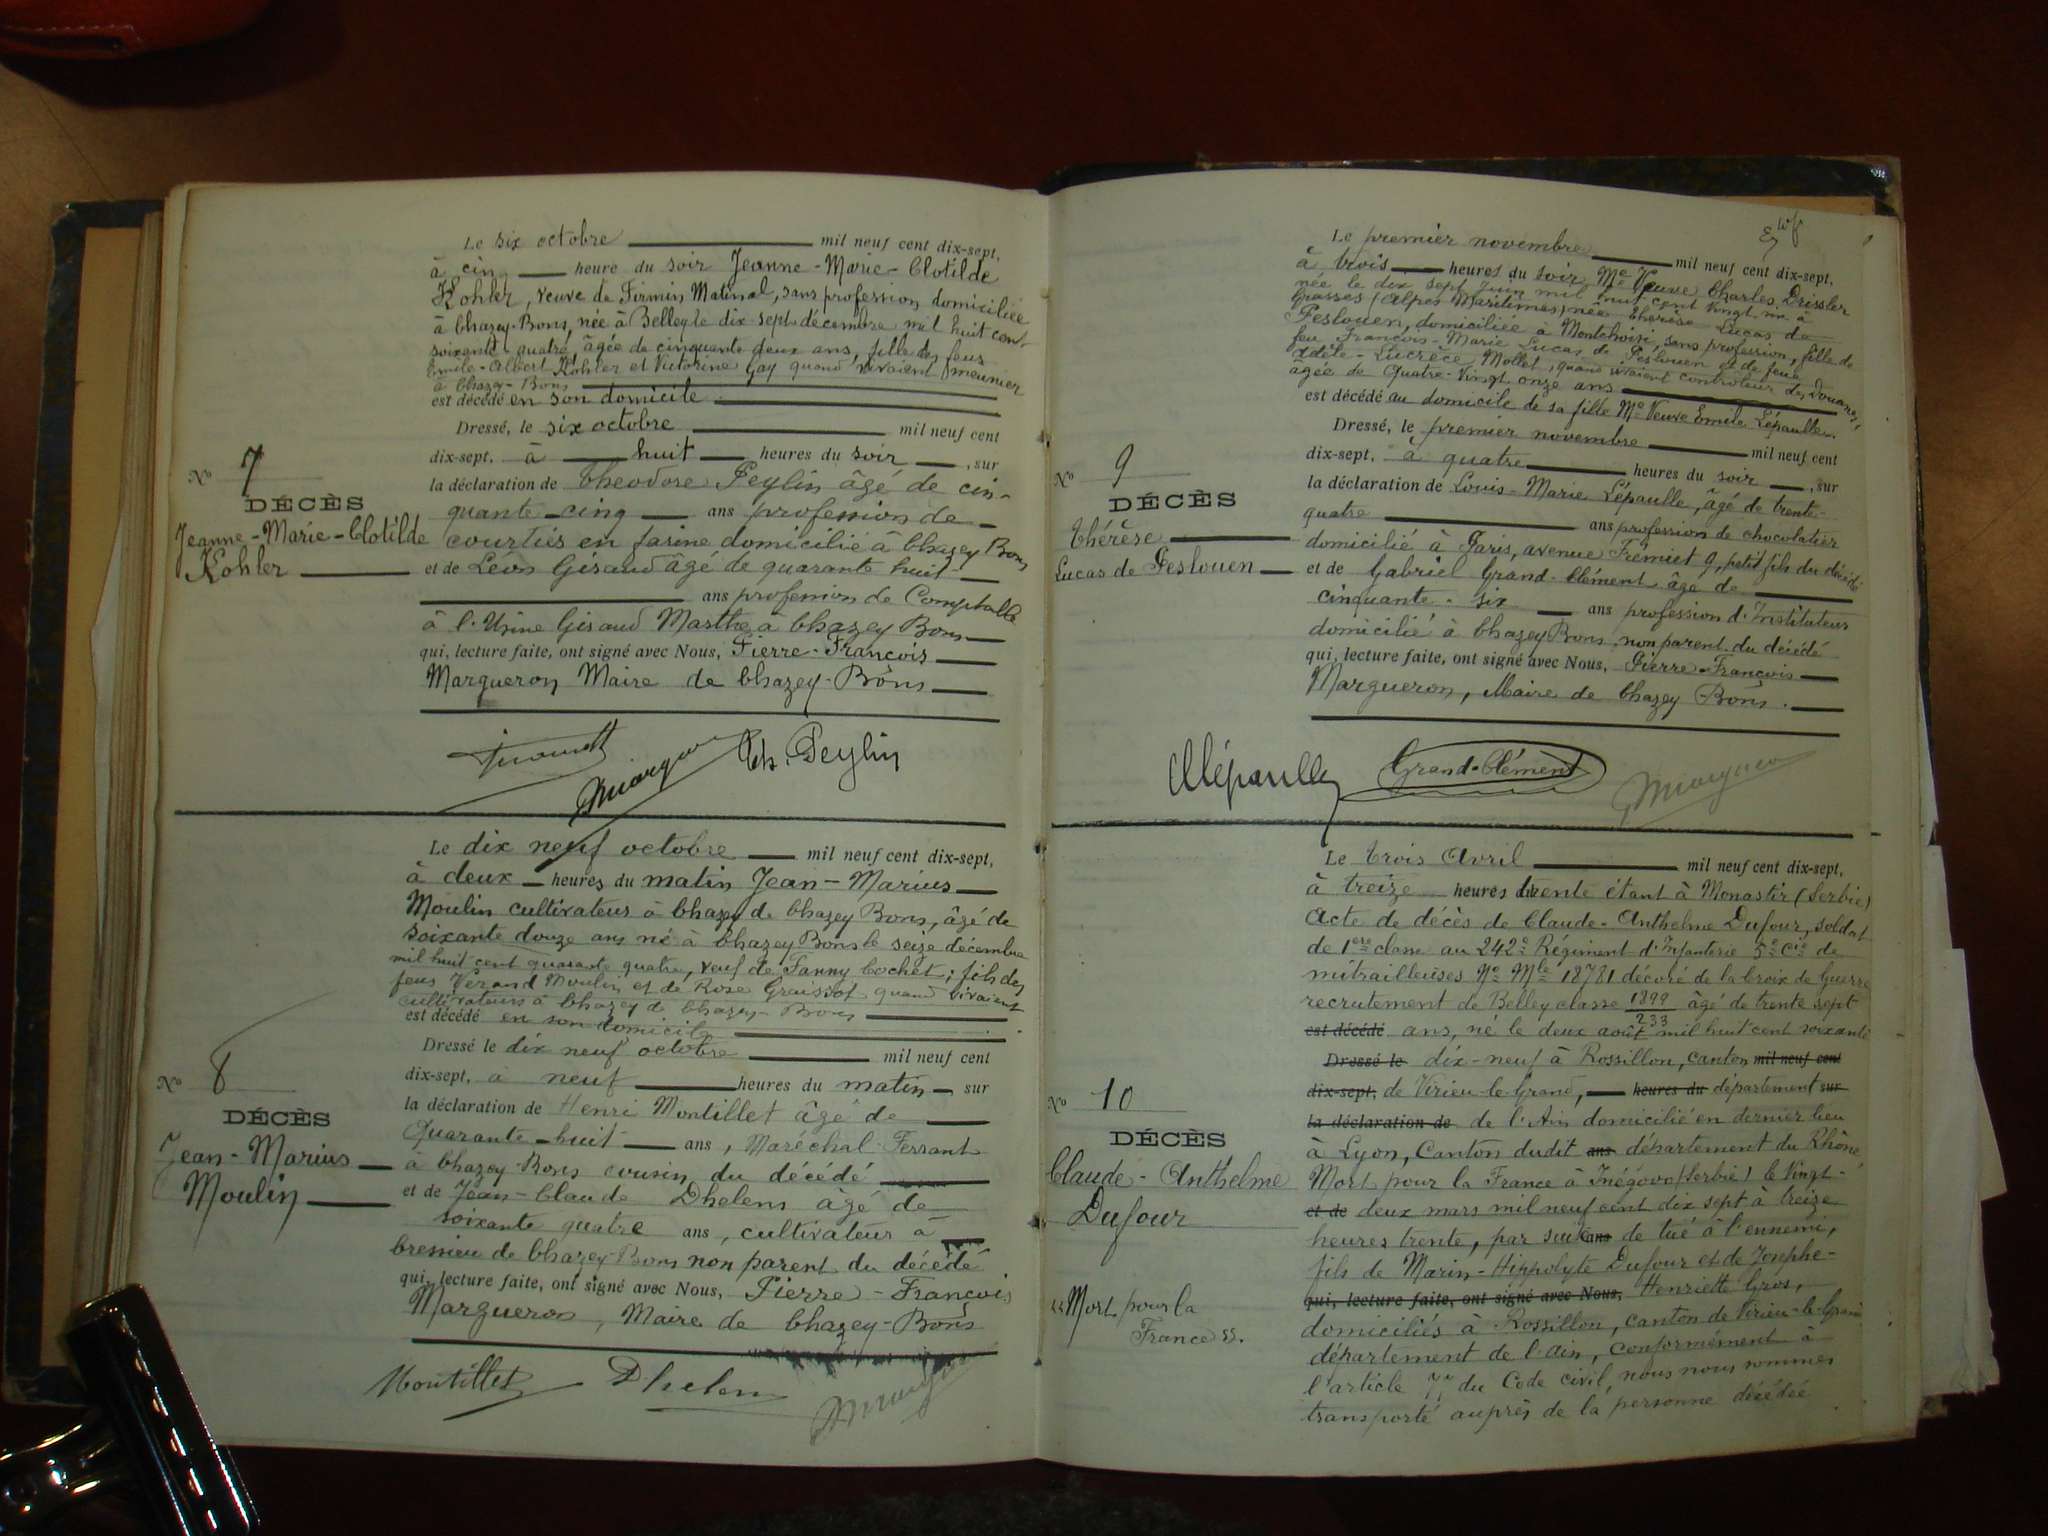 Le six octobre mil neuf cent dix-sept,
à cinq heure du soir Jeanne-Marie-Clotilde
Kohler, veuve de Firmin Matinal, sans profession domiciliée
à Chazey-Bons, née à Belley le dix sept décembre mil huit cent
soixante quatre, âgée de cinquante deux ans, fille des feus
Emile-Albert Kohler et Victorine Gay quand vivaient meunier
à Chazey-Bons
est décédé en son domicile
Dressé, le six octobre mil neuf cent
dix-sept, à huit heures du soir, sur
No 7
la déclaration de Théodore Peylin âgé de cin-
DÉCÈS
quante cinq ans profession de
Jeanne-Marie-Clotilde
Kohler
courtier en farine domicilié à Chazey Bons
et de Léon Giraud âgé de quarante huit
ans profession de Comptable
à l'Usine Giraud Marthe à Chazey Bons
qui, lecture faite, ont signé avec Nous, Pierre-François
Margueron Maire de Chazey-Bons
Th. Peylin
Le dix neuf octobre mil neuf cent dix-sept,
à deux heures du matin Jean-Marius
Moulin cultivateur à Chazey de Chazey Bons, âgé de
soixante douze ans né à Chazey Bons le seize décembre
mil huit cent quarante quatre, veuf de Fanny Cochet; fils des
feus Vérand Moulin et de Rose Graissot quand vivaient
cultivateurs à Chazey de Chazey-Bons
est décédé en son domicile
Dressé le dix neuf octobre mil neuf cent
dix-sept, à neuf heures du matin sur
No 8
la déclaration de Henri Montillet âgé de
DÉCÈS
quarante-huit ans, Maréchal-Ferrant
Jean-Marius
Moulin
à Chazey-Bons cousin du décédé
et de Jean-Claude Dhelens âgé de
soixante quatre ans, cultivateur à
bressieu de Chazey-Bons non parent du décédé
qui, lecture faite, ont signé avec Nous, Pierre-François
Margueron, Maire de Chazey-Bons
Montillet Dhelens
Le premier novembre mil neuf cent dix-sept,
à trois heures du soir, Me Veuve Charles Drissler
née le dix sept Juin mil huit cent vingt six à
Grasses (Alpes Maritimes) née Thérèse Lucas de
Peslouen, domiciliée à Montchoisi, sans profession, fille de
feu François-Marie Lucas de Peslouen et de feue
Adèle-Lucrèce Mollet, quand vivaient controleur des Douanes,
âgée de Quatre-Vingt onze ans
est décédé au domicile de sa fille Me Veuve Emile Lépaulle.
Dressé, le premier novembre mil neuf cent
dix-sept, à quatre heures du soir, sur
No 9
la déclaration de Louis-Marie Lépaulle, âgé de trente-
DÉCÈS
quatre ans profession de chocolatier
Thérèse
Lucas de Peslouen
domicilié à Paris, avenue Frémiet 9, petit fils du décédé
et de Gabriel Grand-Clément âge de
cinquante-six ans profession d'Instituteur
domicilié à Chazey Bons, non parent du décédé
qui, lecture faite, ont signé avec Nous, Pierre-François
Margueron, Maire de Chazey Bons.
Grand-Clément
Le trois Avril mil neuf cent dix-sept,
à treize heures trente étant à Monastir (Serbie)
Acte de décès de Claude-Anthelme Dufour, soldat
de 1ère classe au 242e Régiment d'Infanterie 5e Cie de
mitrailleuses No Mle 18781 décoré de la Croix de Guerre
recrutement de Belley classe 1899/233 âgé de trente sept
est décédé ans, né le deux août mil huit cent soixante
Dressé le dix-neuf à Rossillon, canton mil neuf cent
dix-sept, de Virieu-le-Grand, heures du département sur
No 10
la déclaration de de l'Ain domicilié en dernier lieu
DÉCÈS
à Lyon, Canton dudit ans département du Rhône,
Claude-Anthelme
Dufour
Mort pour la France à Inégovo (Serbie) le vingt-
et de deux mars mil neuf cent dix sept à treize
heures trente, par suite ans de tué à l'ennemi,
fils de Marin-Hippolyte Dufour et de Josephe-
qui, lecture faite, ont signé avec Nous, Henriette Gros,
"Mort pour la
France".
domiciliés à Rossillon, canton de Virieu-le-Grand
département de l'ain, conformément à
l'article 77 du Code civil, nous nous sommes
transporté auprès de la personne décédée